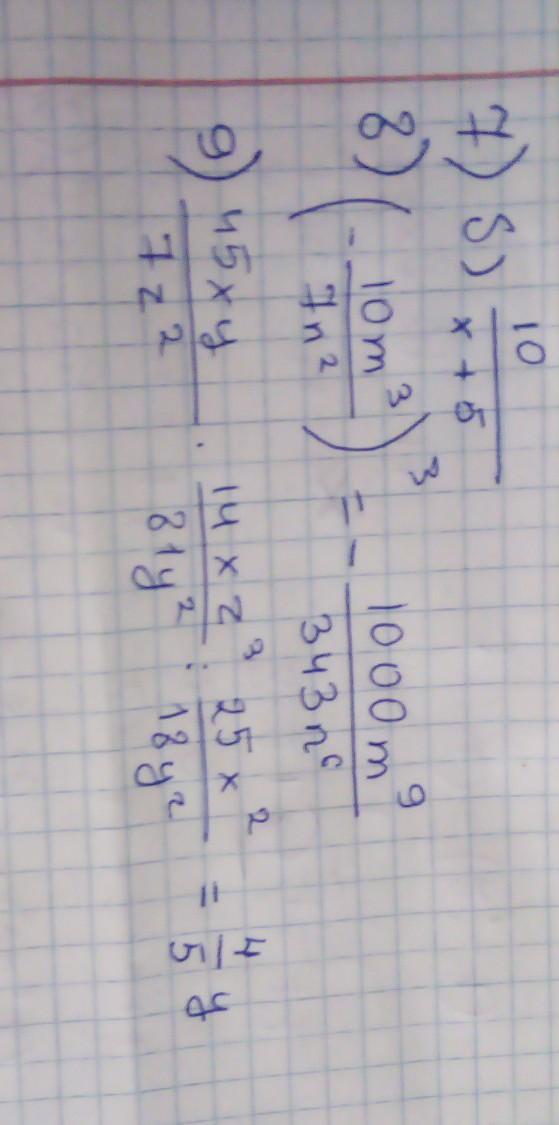 7) б) 10/(x + 5)
8) (- 10m³/7n²)³ = - 1000m⁹/343n⁶
9) 45xy/7z² · 14xz³/81y² : 25x²/18y² = 4/5 y